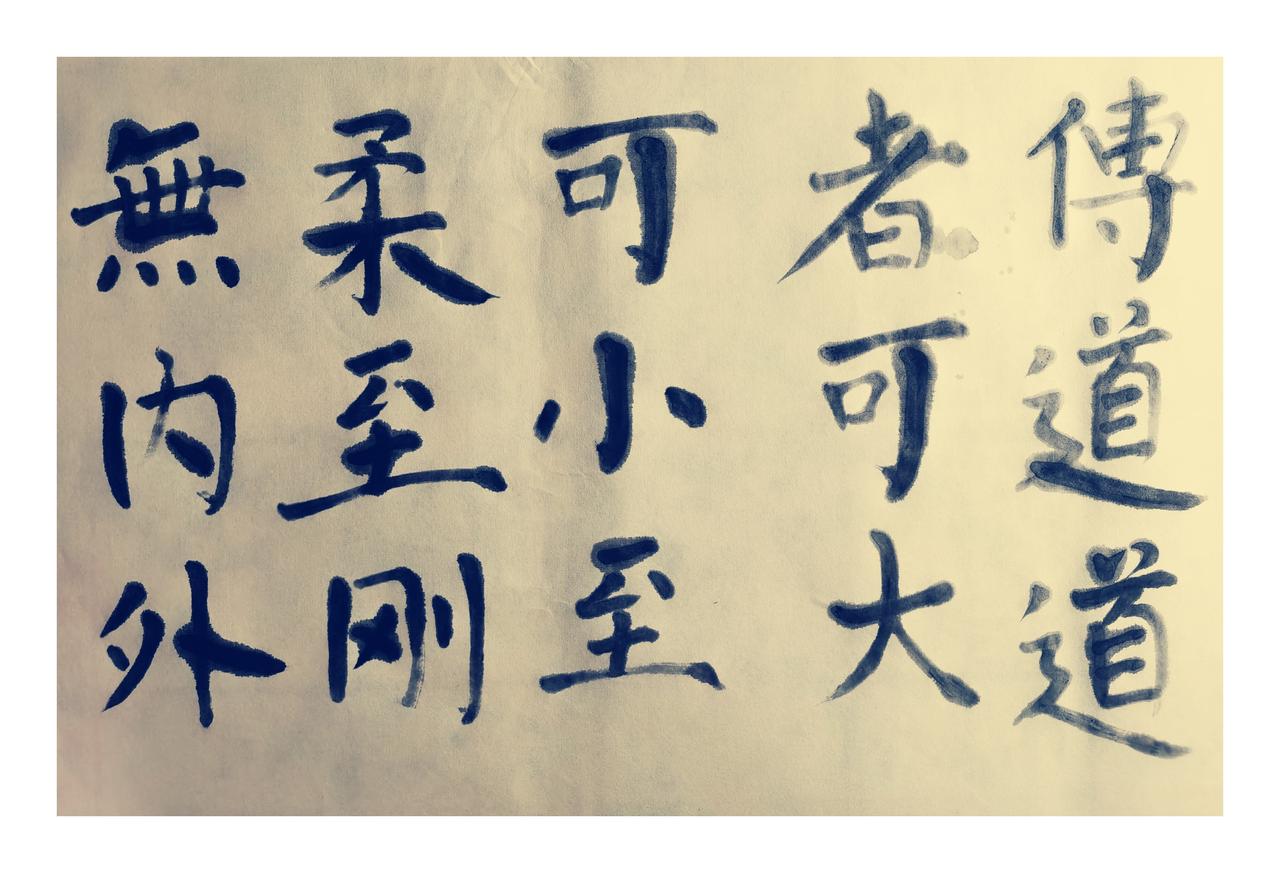 傳道道
者可大
可小至
柔至刚
無内外